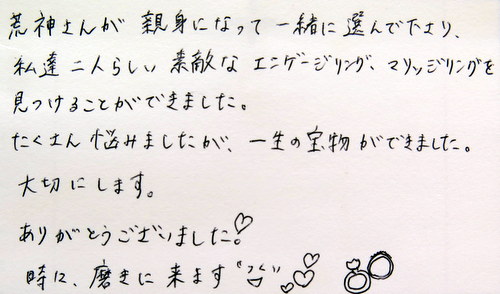 荒神さんが 親身になって 一緒に 選んで下さり、
私達 二人らしい 素敵な エンゲージリング、マリッジリングを
見つけることができました。
たくさん 悩みましたが、一生の宝物ができました。
大切にします。
ありがとうございました♡
時に、磨きに 来ます